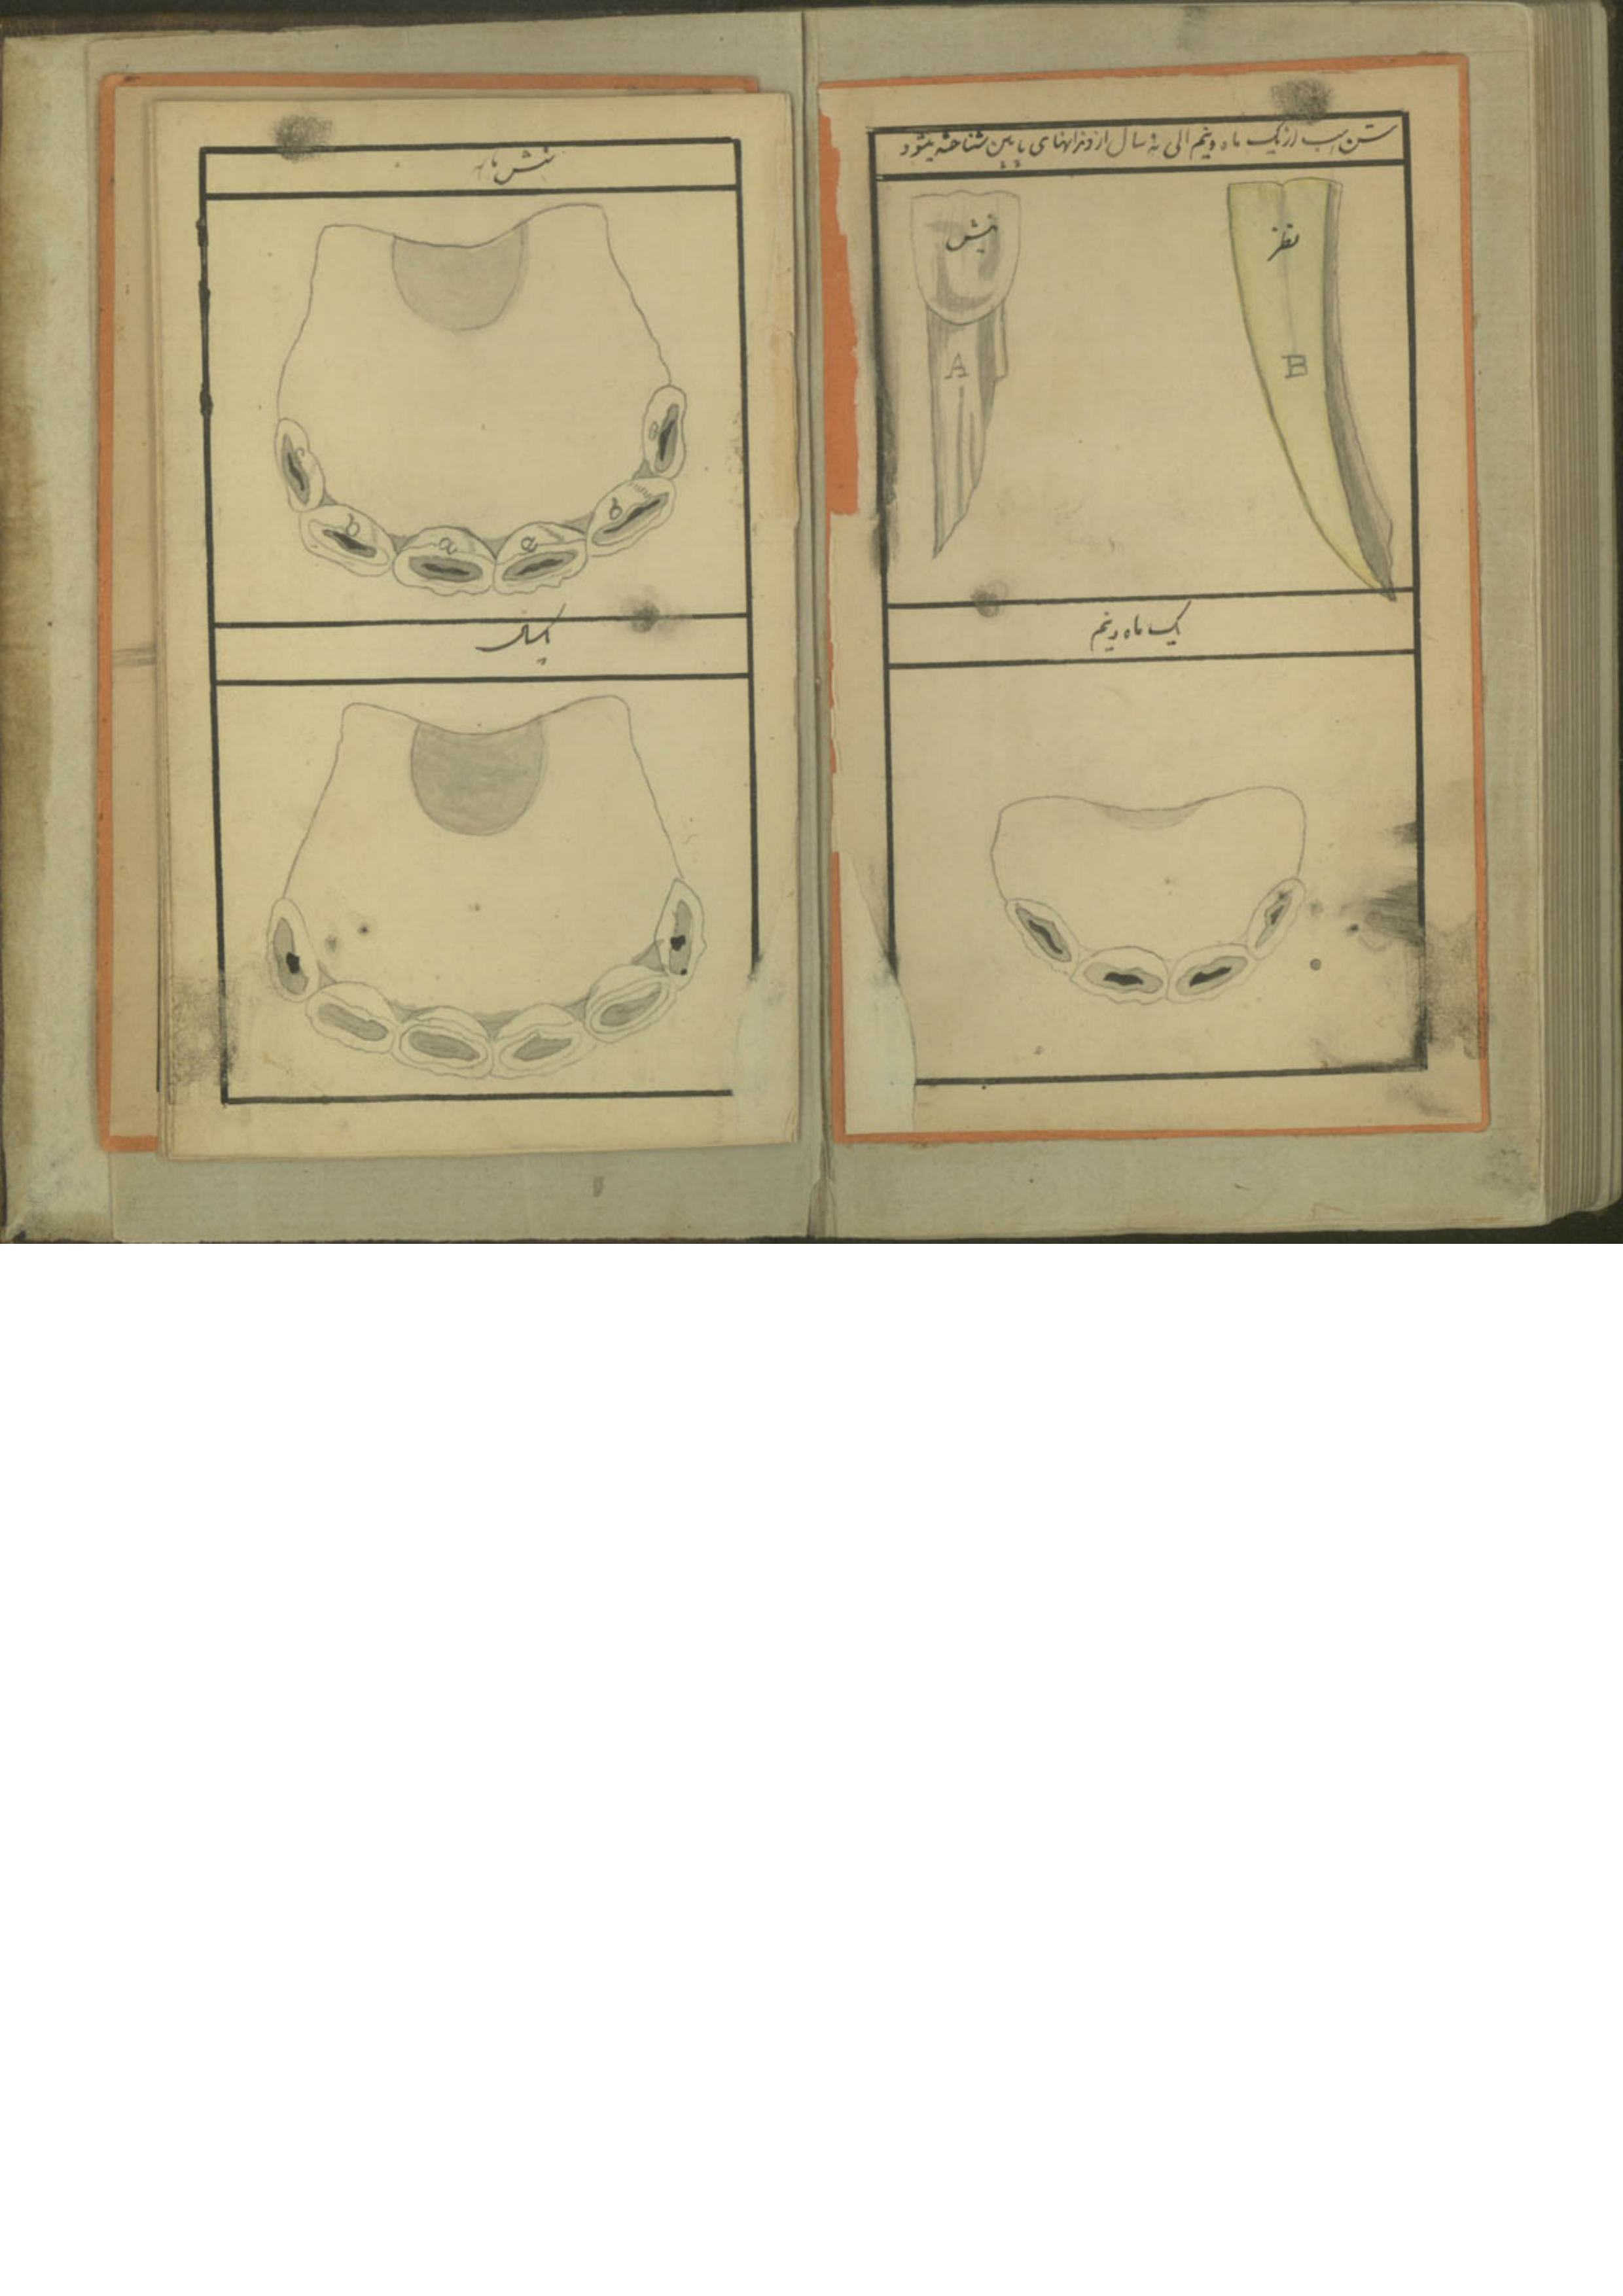 سن اسب از یک ماه و نیم الی نه سال از دندانهای پایین شناخته میشود
نیش
A
B
یک ماه و نیم
شش ماه
c
b
a
a
b
یکسال